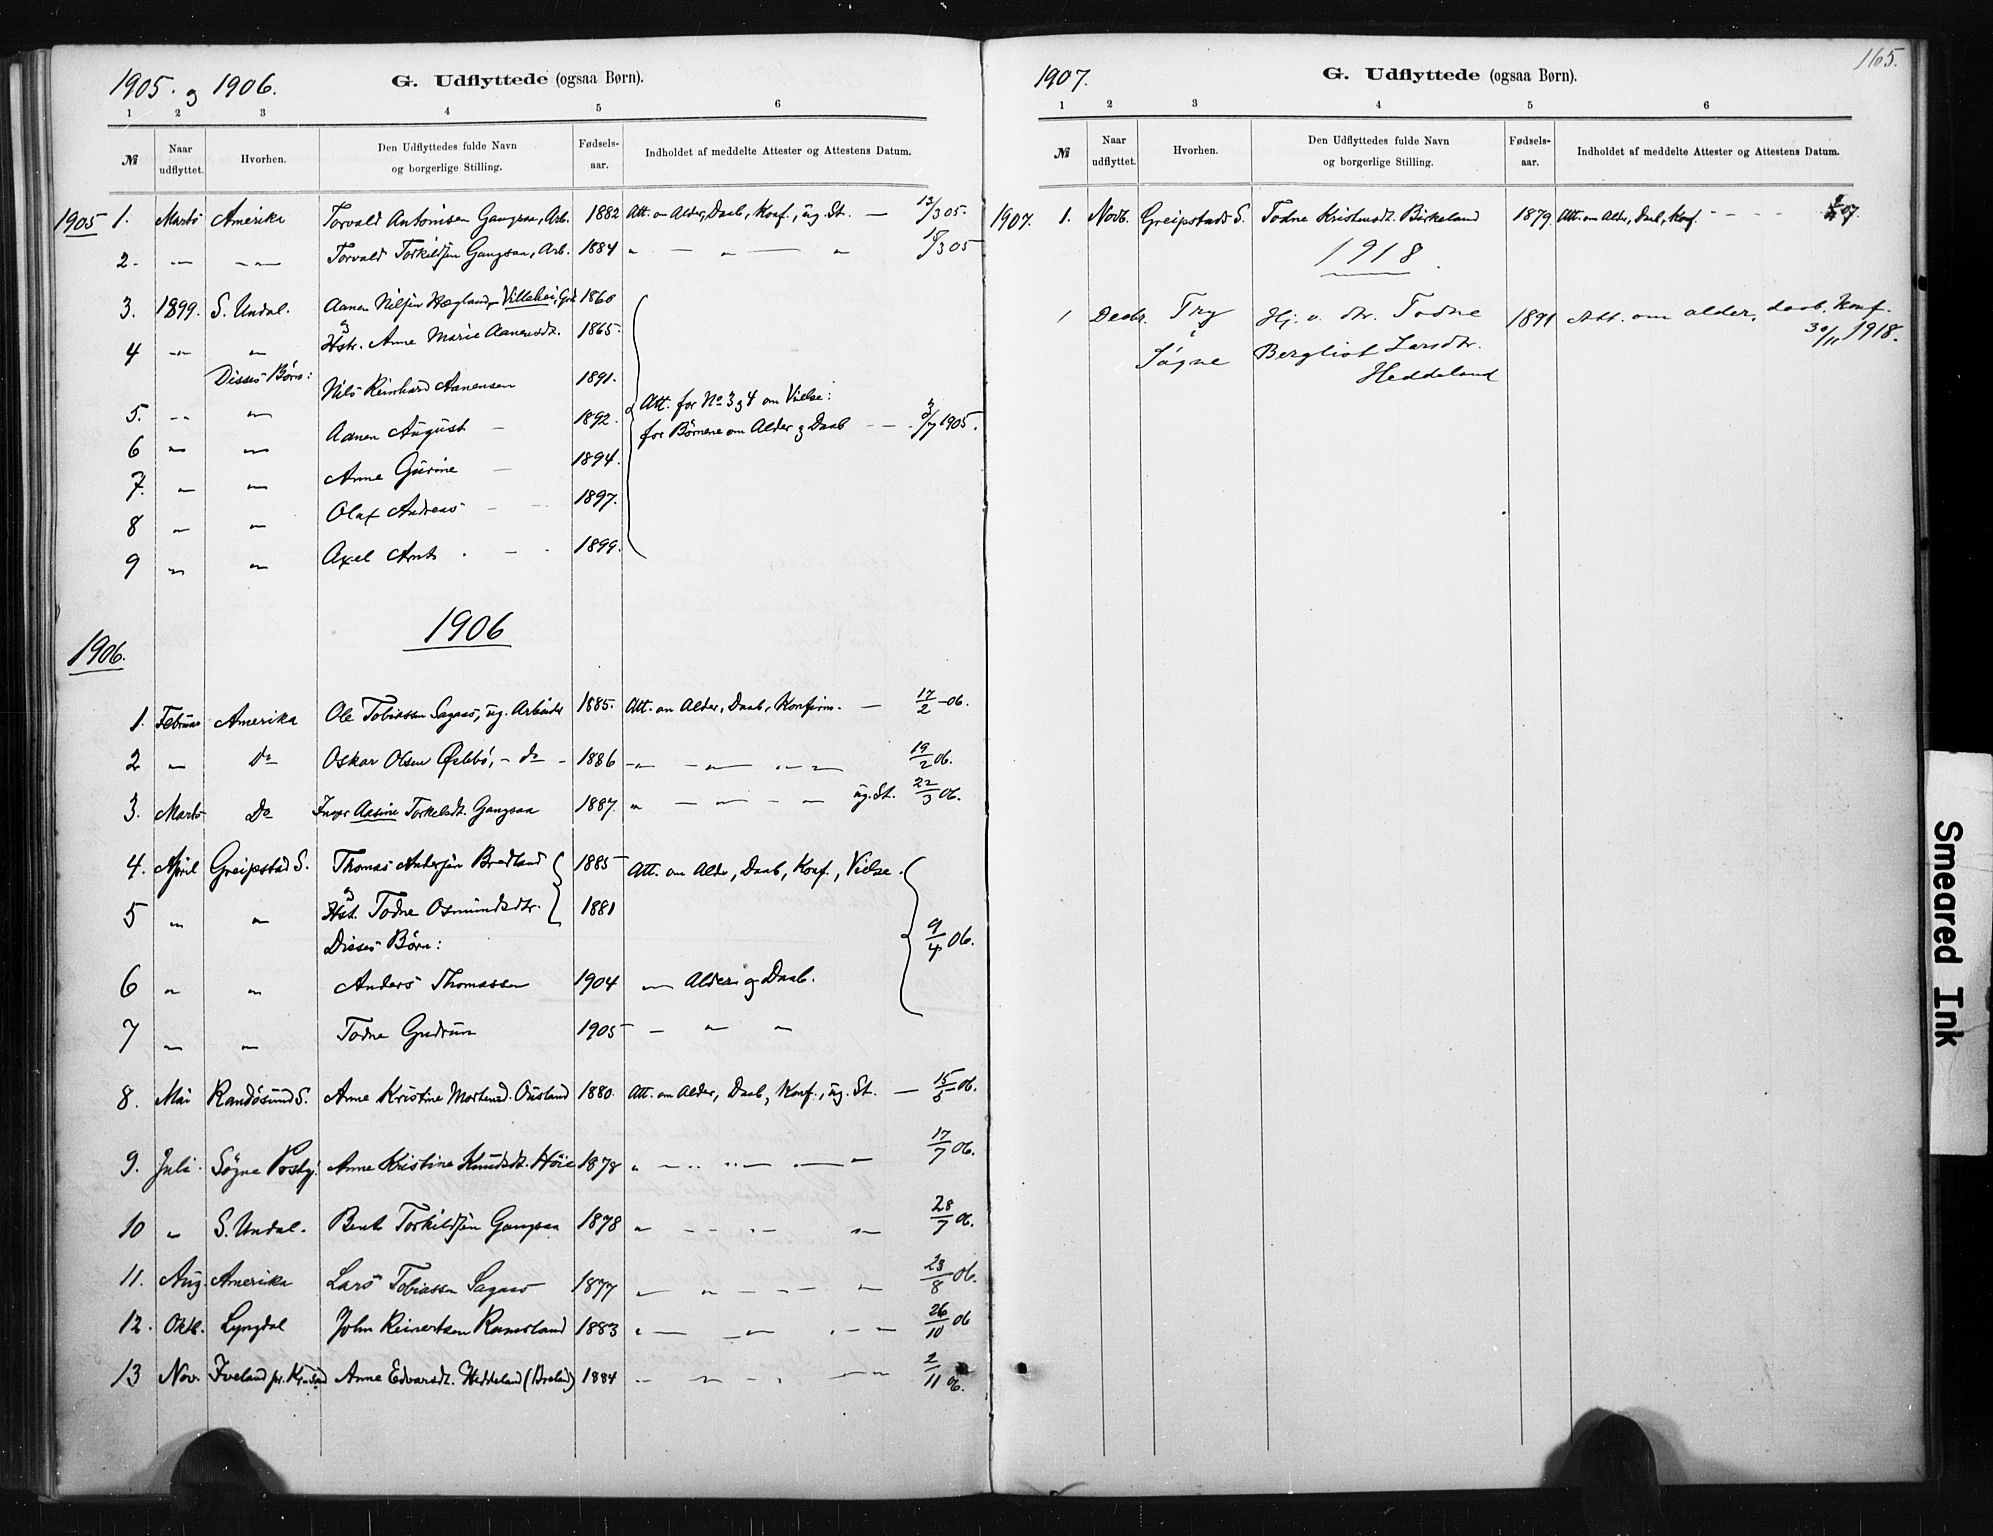 1905. og 1906.
G. Udflyttede (ogsaa Børn).
1 2 3 4 5 6
№ Naar udflyttet. Hvorhen. Den Udflyttedes fulde Navn og borgerlige Stilling. Fødsels-aar. Indholdet af meddelte Attester og Attestens Datum.
1905 1. Marts Amerika Torvald Antonisen Gangsaa, Arb. 1882 Att. om Alder, Daab, Konf., ug. St. — 13/3 05.
2. — — Torvald Torkildsen Gangsaa, Arb. 1884 " — " — " 15/3 05
3. 1899. S. Undal. Aanen Nilsen Hægland, Villehei, Grd. 1860
4 — " og Hstr. Anne Marie Aanensdt. 1865.
Disses Børn:
5. " " Nils Reinhard Aanensen 1891.
6 " " Aanen August — 1892.
7. " " Anne Gurine — 1894.
8 " " Olaf Andreas — 1897.
9 " " Axel Arnt — 1899.
Att. for No 3 og 4 om Vielse:
for Børnene om Alder og Daab — 3/7 1905.
1906
1906.
1. Februar Amerika Ole Tobiassen Sagaas, ug. Arbeider 1885. Att. om Alder, Daab, Konfirm. — 17/2 06.
2 " Do Oskar Olsen Øslebø, — do — 1886 " — " — " 19/2 06.
3. Marts Do Inger Aasine Torkelsdt. Gangsaa 1887. " — " — " ug. St. 22/3 06.
4. April Greipstad S. Thomas Andersen Bredland 1885 Att. om Alder, Daab, Konf., Vielse.
5 " " og Hst. Todne Osmundsdtr. 1881
Disses Børn:
9/4 06.
6 " " Anders Thomassen 1904 " Alder og Daab.
7 " " Todne Gudrun 1905 — " "
8. Mai Randøsund S. Anne Kristine Mortensd. Ousland 1880. Att. om Alder, Daab, Konf., ug. St. — 15/5 06.
9. Juli. Søgne Anne Kristine Knudsdt. Høie 1878 " — " — " 17/7 06.
10 " S. Undal. Bent Torkildsen Gangsaa 1878 " — " 28/7 06.
11. Aug. Amerika Lars Tobiassen Sagaas 1877 " " — " 23/8 06.
12. Okt. Lyngdal John Reinertsen Ramsland 1883 " — " — " 26/10 06
13 Nov. Iveland pr. Kr.sand Anne Edvardsdt. Heddeland (Breland) 1884 " — " — " 2/11 06.
165.
1907.
G. Udflyttede (ogsaa Børn).
1 2 3 4 5 6
№ Naar udflyttet. Hvorhen. Den Udflyttedes fulde Navn og borgerlige Stilling. Fødsels-aar. Indholdet af meddelte Attester og Attestens Datum.
1907. 1. Novb. Greipstads S. Todne Kristensdt. Birkeland 1879. Att. om Alder, Daab, Konf. — 07.
1918.
1 Decbr. Try i Søgne Hj. v. dtr. Todne Bergliot Larsdtr. Heddeland 1891 Att. om alder, daab, Konf. 30/11 1918.
Smeared Ink